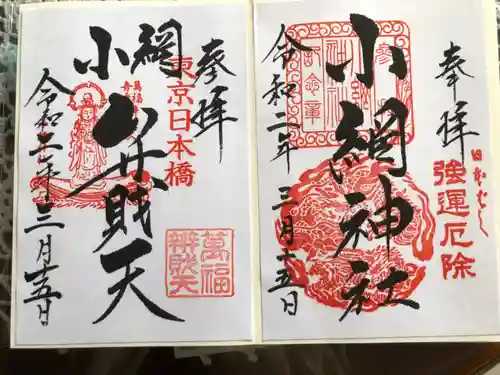 奉拝
強運厄除
小網神社
令和二年三月十五日
奉拝
東京日本橋
小網
弁財天
萬福
辨財天
令和二年三月十五日